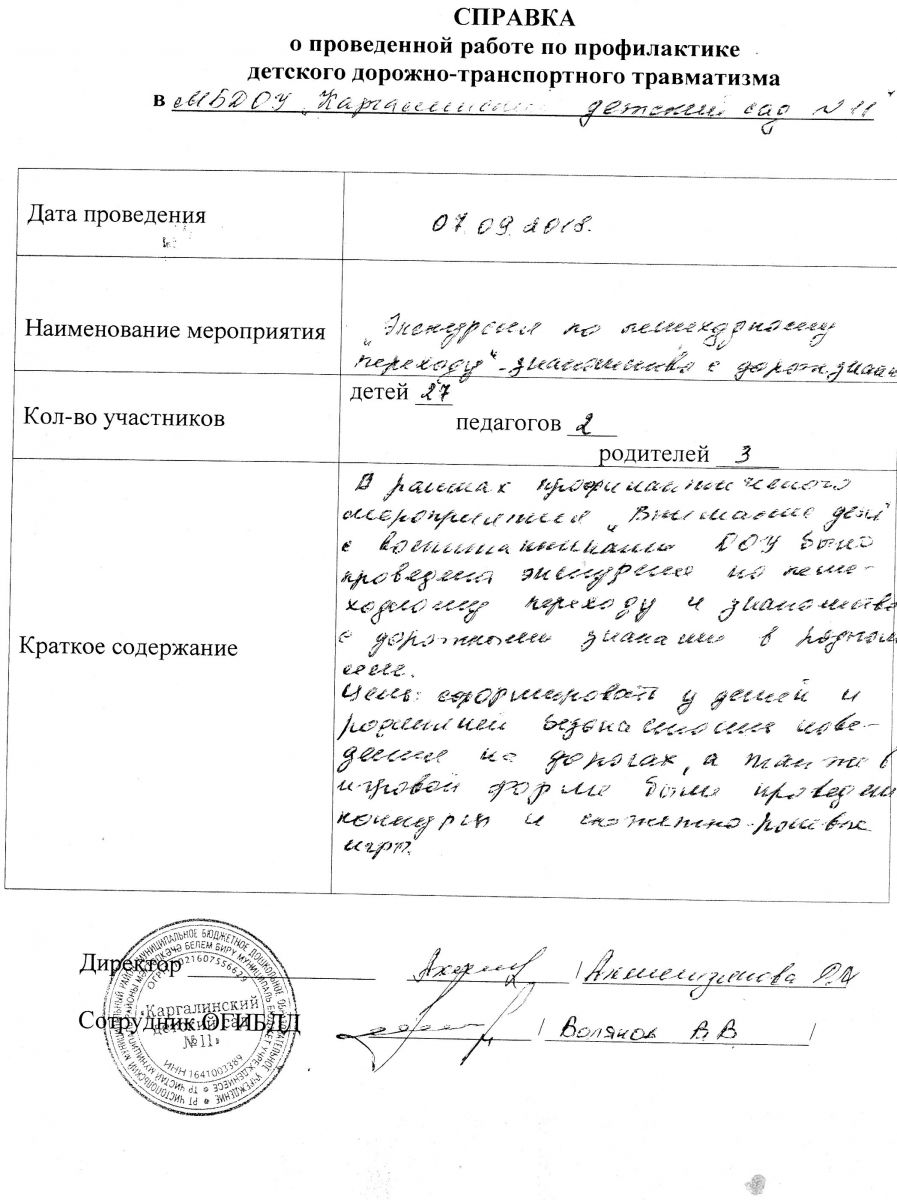 СПРАВКА
о проведенной работе по профилактике
детского дорожно-транспортного травматизма
в МБДОУ „Каргалинский детский сад №11"
Дата проведения
07.09.2018.
Наименование мероприятия
„Экскурсия по пешеходному
переходу" - знакомство с дорож.знаками
Кол-во участников
детей 27
педагогов 2
родителей 3
Краткое содержание
В рамках профилактического
мероприятия „Внимание дети"
с воспитанниками ДОУ была
проведена экскурсия по пеше-
ходному переходу и знакомство
с дорожными знаками в родном
селе.
Цель: сформировать у детей и
родителей безопасное пове-
дение на дорогах, а также в
игровой форме были проведены
конкурсы и сюжетно-ролевые
игры.
Директор
Сотрудник ОГИБДД
Воляков В.В
Каргалинский
детский сад
№11»
ИНН 1641003389